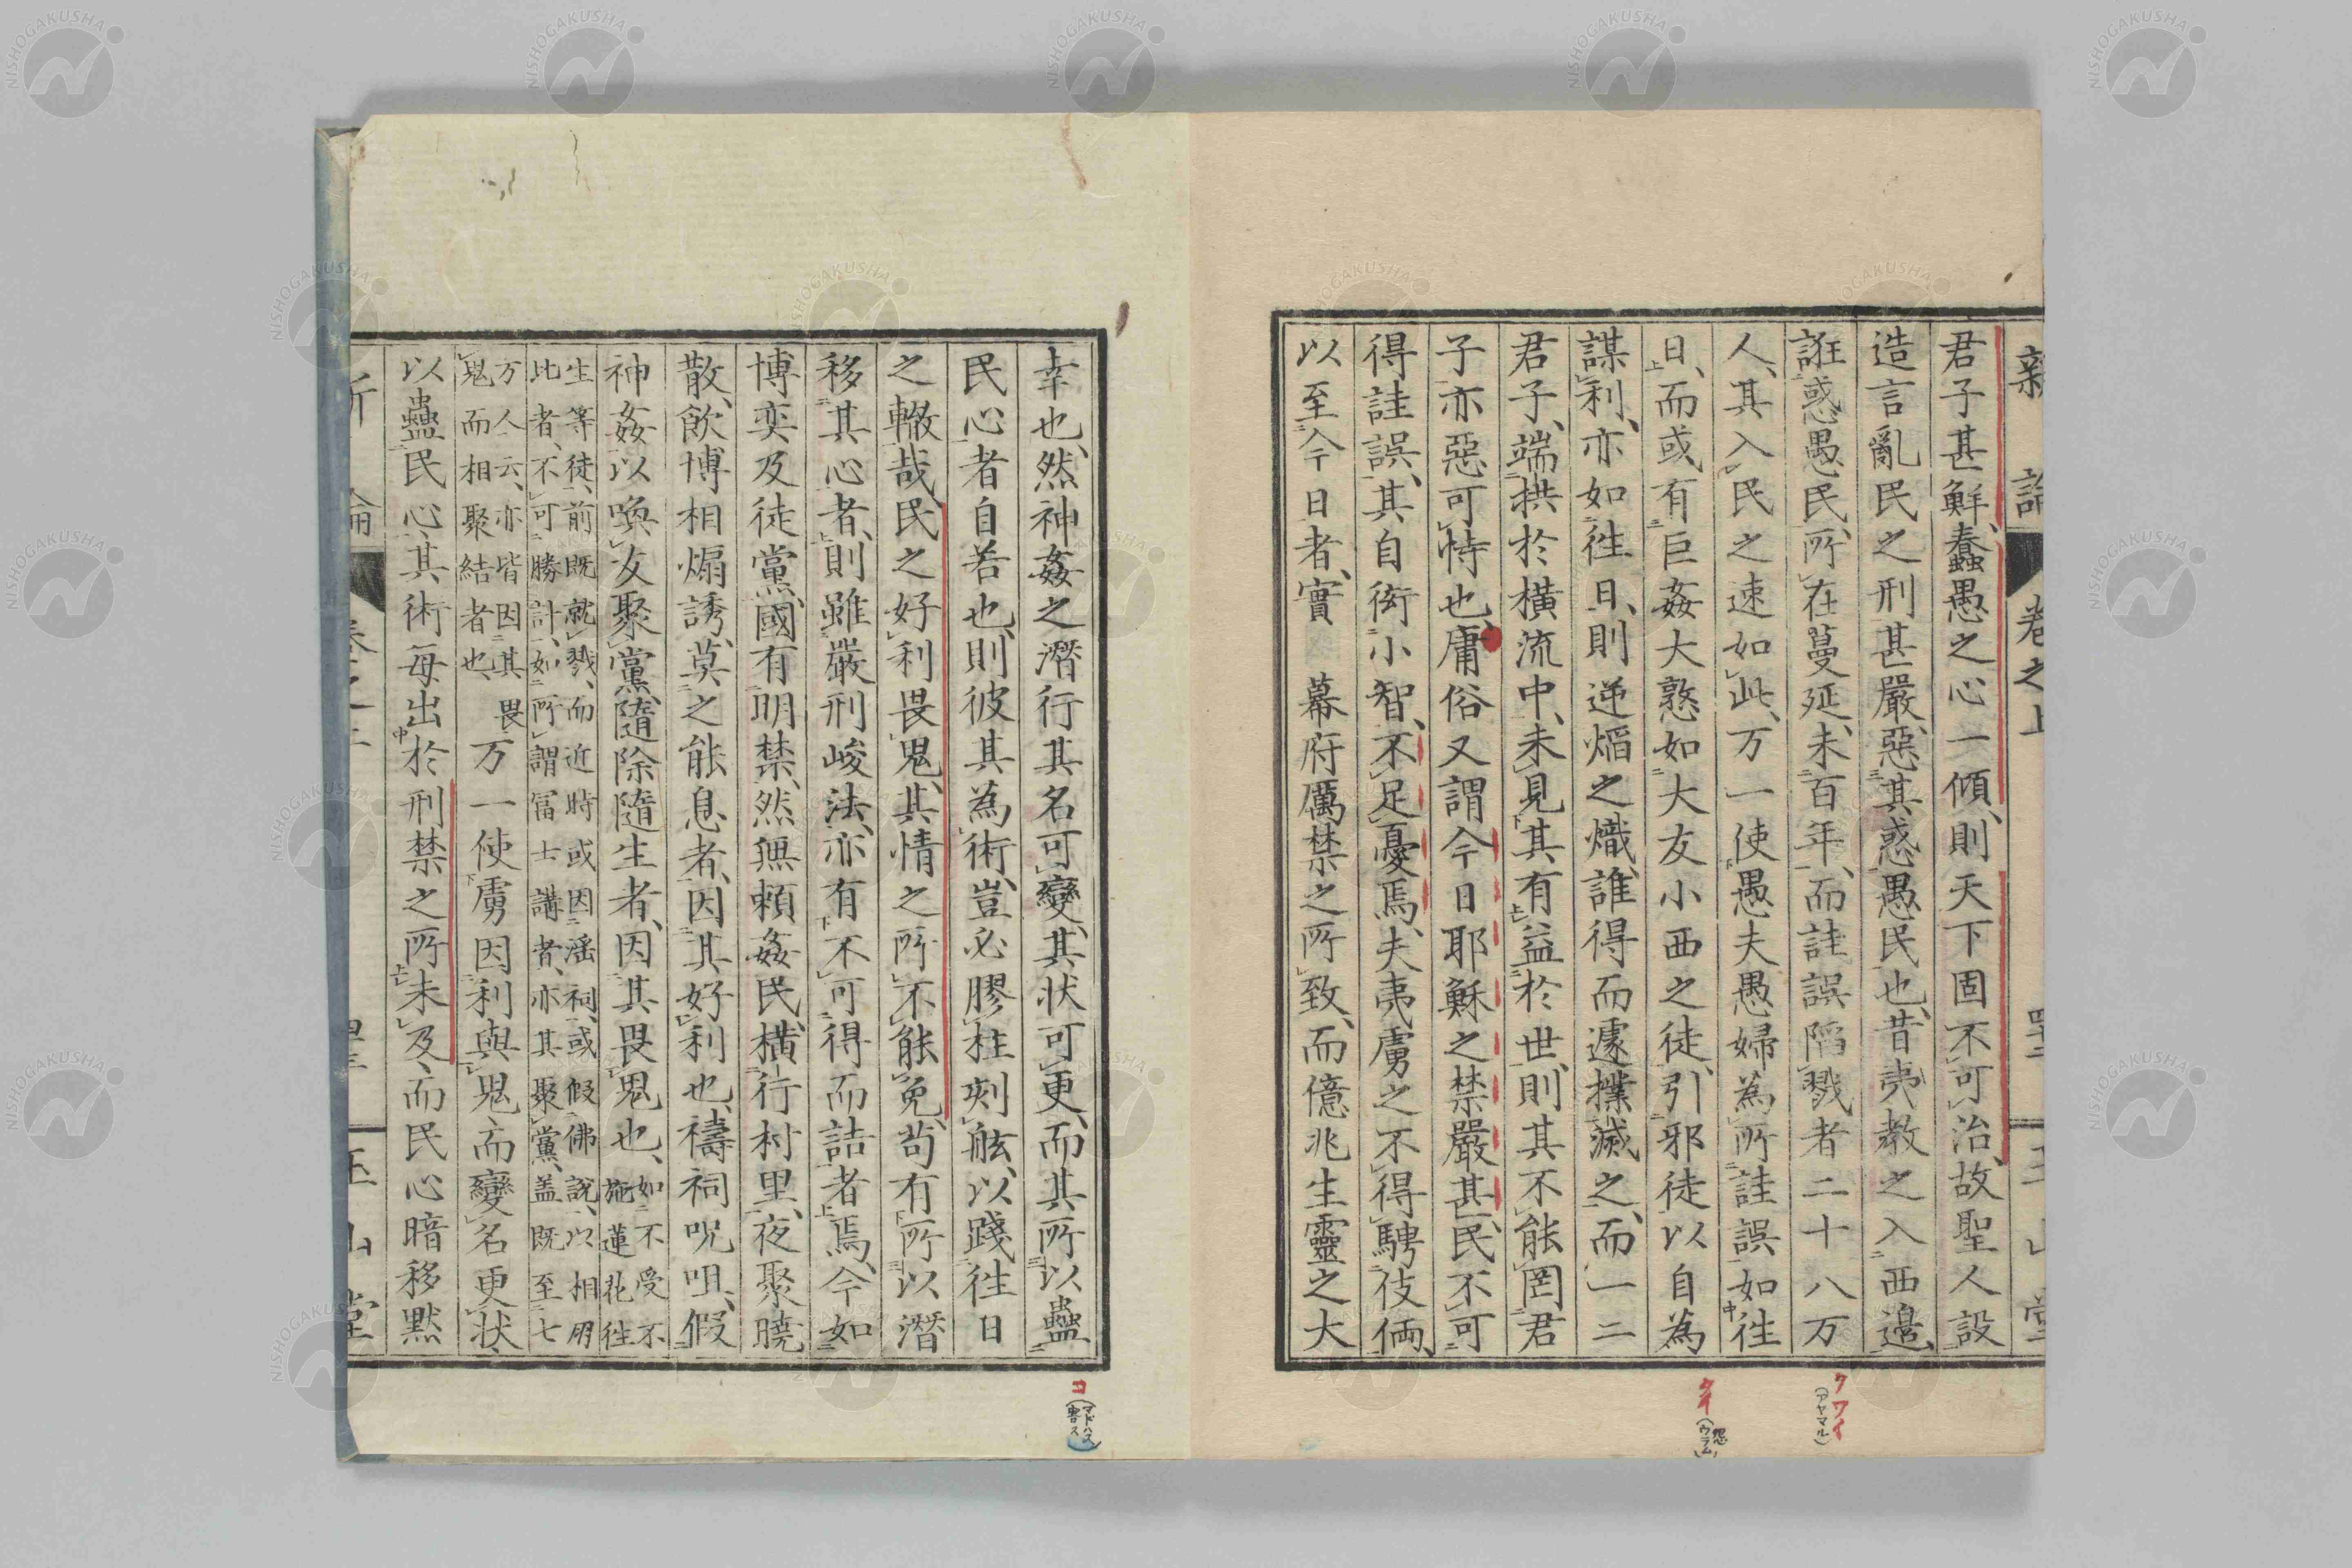 新論 卷之上
君子甚鮮、蠢愚之心一傾、則天下固不可治、故聖人設
造言亂民之刑甚嚴、惡其惑愚民也、昔夷教之入西邉、
誑惑愚民、所在蔓延、未百年、而詿誤陷戮者二十八万
人、其入民之速如此、万一使愚夫愚婦為所詿誤如徃
日、而或有巨姦大憝如大友小西之徒、引邪徒以自為
謀利、亦如徃日、則逆熖之熾、誰得而遽撲滅之、而一二
君子、端拱於橫流中、未見其有益於世、則其不能罔君
子亦惡可恃也、庸俗又謂今日耶穌之禁嚴甚、民不可
得詿誤、其自衒小智、不足憂焉、夫夷虜之不得騁伎倆、
以至今日者、實 幕府厲禁之所致、而億兆生靈之大
幸也、然神姦之潛行其名可變、其状可更、而其所以蠱
民心者自若也、則彼其為術、豈必膠柱刻舷、以踐徃日
之轍哉、民之好利畏鬼、其情之所不能免、苟有所以潛
移其心者、則雖嚴刑峻法、亦有不可得而詰者焉、今如
博奕及徒黨、國有明禁、然無頼姦民、橫行村里、夜聚曉
散、飲博相煽誘、莫之能息者、因其好利也、禱祠呪咀、假
神姦以喚友聚黨、隨除隨生者、因其畏鬼也、如不受不
施蓮花徃
生等徒、前既就戮、而近時或因滛祠、或假佛説、以相朋
比者、不可勝計、如所謂冨士講者、亦其聚黨、盖既至七
万人云、亦皆因其畏
鬼而相聚結者也、万一使虜因利與鬼、而變名更状、
以蠱民心、其術每出於刑禁之所未及、而民心暗移黙
新論
玉山堂
クワイ
(アヤマル)
タイ
(ウラム)
怨
コ
(マドハス)